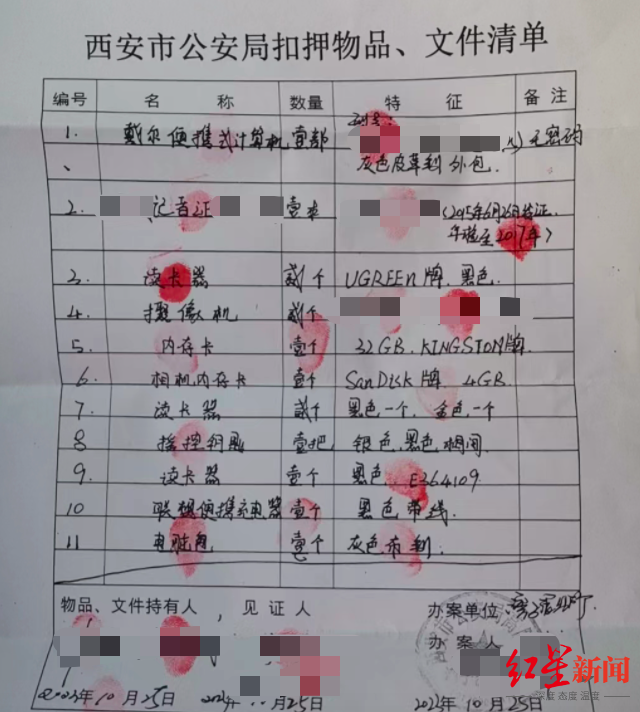 西安市公安局扣押物品、文件清单
编号 名 称 数量 特 征 备 注
1. 戴尔便携式计算机 壹部 型号: 无密码
、 灰色皮革制外包.
2. 记者证 壹本 (2015年6月26日发证.
年检至2017年)
3. 读卡器 贰个 UGREEN牌.黑色.
4. 摄像机 贰个
5. 内存卡 壹个 32GB.KINGSTON牌.
6. 相机内存卡 壹个 SanDisk牌. 4GB.
7. 读卡器 贰个 黑色一个,金色一个
8 遥控钥匙 壹把 银色,黑色相间
9. 读卡器 壹个 黑色. E364109
10 联想便携充电器 壹个 黑色带线.
11 电脑包 壹个 灰色布制.
物品、文件持有人, 见证人 办案单位:
办案人
2023年10月25日 25日 2023年10月25日
红星新闻
深度 态度 温度